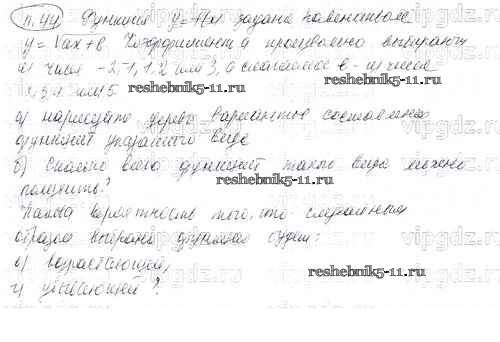 п. 44 Функция y=f(x) задана равенством
y = √ax+в. Коэффициент а произвольно выбирают
из чисел -2,-1,1,2 или 3, а слагаемое в - из чисел
reshebnik5-11.ru
3, или 5. reshebnik5-11.ru
а) нарисуйте дерево вариантов составления
функций указанного вида
б) Сколько всего функций такого вида можно
получить? reshebnik5-11.ru
Какова вероятность того, что случайным
образом выбранная функция будет:
в) возрастающей, reshebnik5-11.ru
г) убывающей?